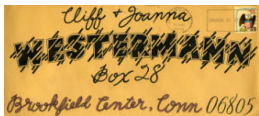 Cliff + Joanna
WESTERMANN
Box 28
Brookfield Center, Conn 06805